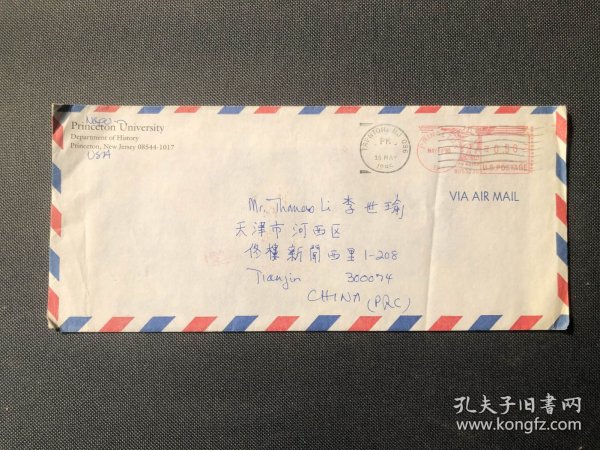 Princeton University
Department of History
Princeton, New Jersey 08544-1017
USA
TRENTON NJ 086
PM
15 MAY
U.S. POSTAGE
VIA AIR MAIL
Mr. Thomas Li 李世瑜
天津市河西区
佟樓新聞西里1-208
Tianjin 300074
CHINA (PRC)
孔夫子旧书网
www.kongfz.com